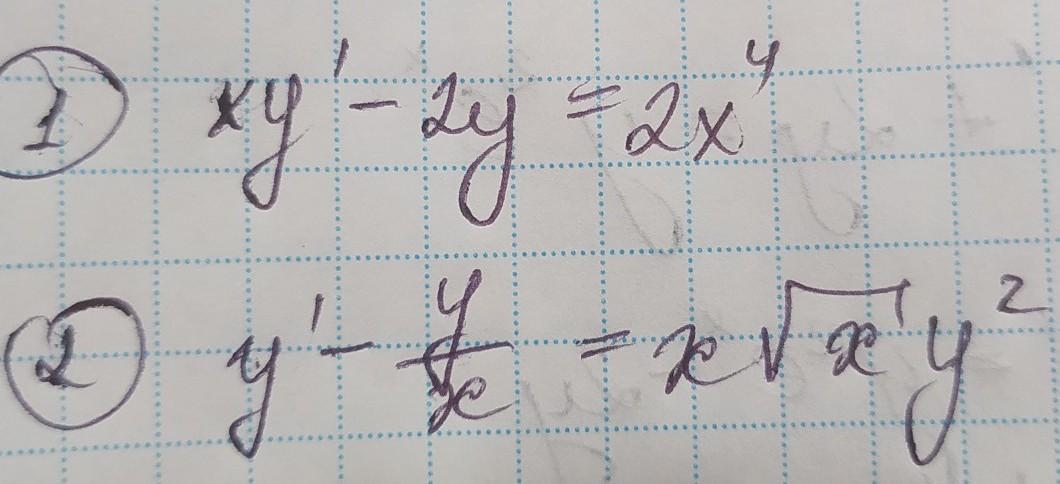 ① xy' - 2y = 2x⁴
② y' - y/x = x√x y²